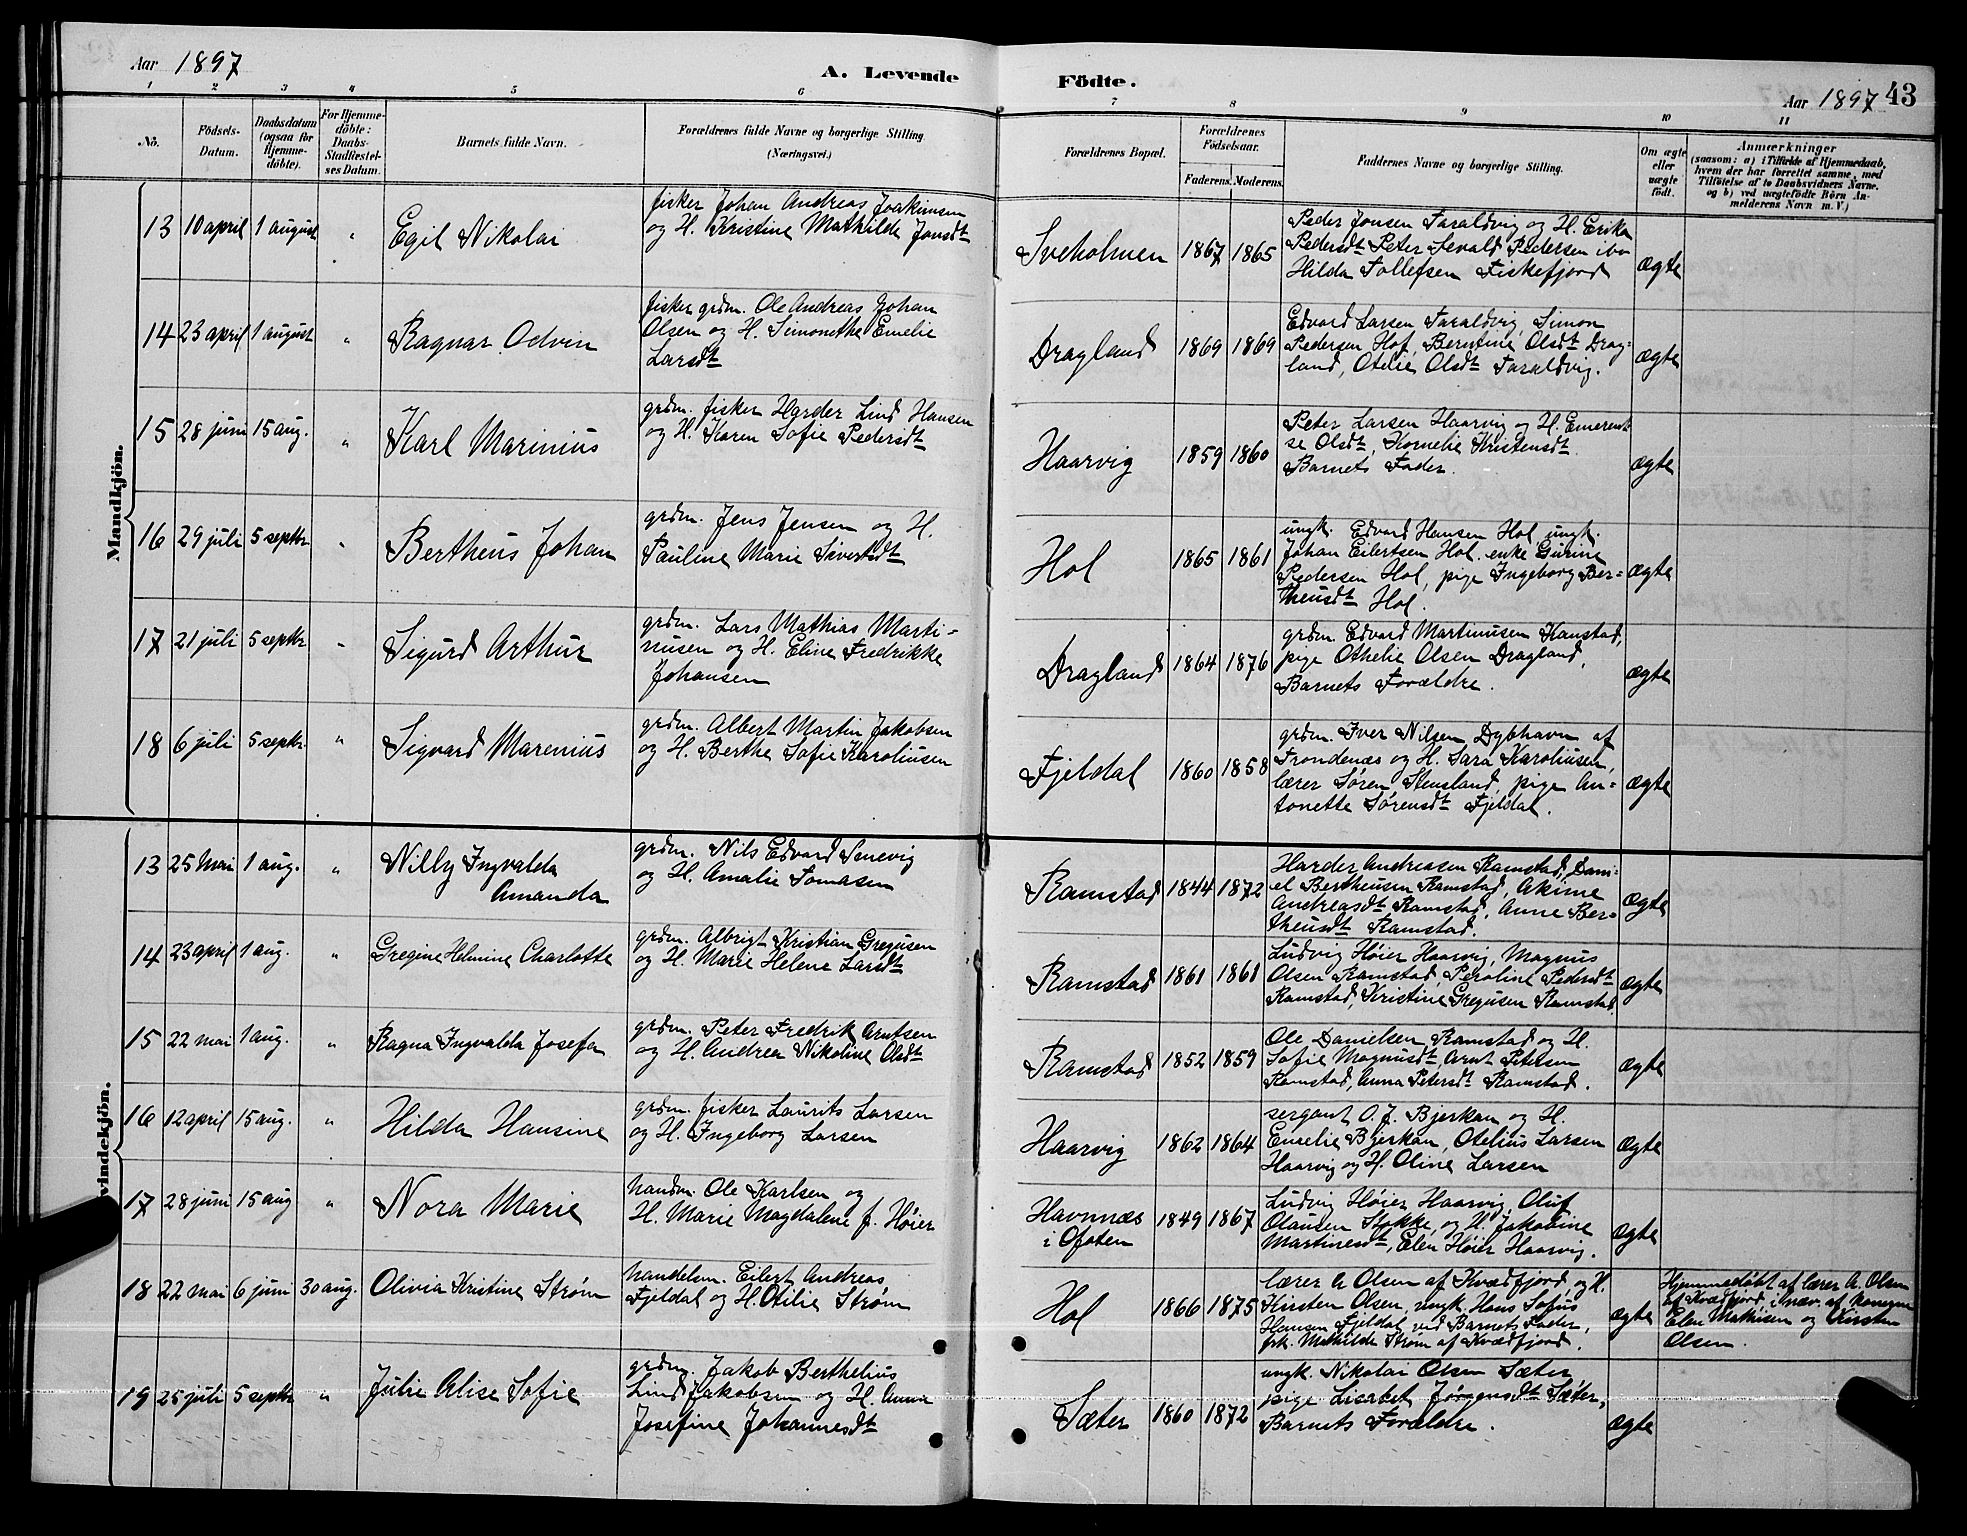 Aar 1897
A. Levende Födte.
Aar 1897 43
1 2 3 4 5 6 7 8 9 10 11
No.
Födsels-
Datum.
Daabsdatum
(ogsaa för
Hjemme-
döbte).
For Hjemme-
döbte:
Daabs-
Stadfæstel-
ses Datum.
Barnets fulde Navn.
Forældrenes fulde Navne og borgerlige Stilling
(Næringsvei.)
Forældrenes Bopæl.
Forældrenes
Födselsaar.
Faderens. Moderens.
Faddernes Navne og borgerlige Stilling.
Om ægte
eller
uægte
födt.
Anmærkninger
(saasom: a) i Tilfælde af Hjemmedaab,
hvem der har forrettet samme, med
Tilföielse af to Daabsvidners Navne.
og b) ved uægtefödte Börn An-
melderens Navn m. V.)
Mandkjön.
13 10 april 1 august " Egil Nikolai
fisker Johan Andreas Joakimsen
og H. Kristine Mathilde Jonsdt
Sveholmen 1867 1865
Peder Jonsen Taraldvig og H. Erika
Pedersdt Peter Sevald Pedersen ibn
Hilda Tollefsen Fiskefjord
ægte
14 23 april 1 august " Ragnar Odvin
fisker grdm. Ole Andreas Johan
Olsen og H. Simonethe Emelie
Larsdt
Dragland 1869 1869
Edvard Larsen Taraldvig, Simon
Pedersen Hof, Berntine Olsdt Drag=
land, Otelie Olsdt Taraldvig.
ægte
15 28 juni 15 aug. " Karl Marinius
grdm. fisker Harder Lind Hansen
og H. Karen Sofie Pedersdt
Haarvig 1859 1860
Peter Larsen Haarvig og H. Emerent
se Olsdt, Kornelie Kristensdt
Barnets Fader.
ægte
16 29 juli 5 septbr " Bertheus Johan
grdm. Jens Jensen og H.
Pauline Marie Sivertsdt
Hol 1865 1861
ungk. Edvard Hansen Hol, ungk.
Johan Eilertsen Hol, enke Gurine
Pedersen Hol, pige Ingeborg Ber=
theusdt Hol.
ægte
17 21 juli 5 septbr " Sigurd Arthur
grdm. Lars Mathias Marti=
nusen og H. Eline Fredrikke
Johansen
Dragland 1864 1876
grdm. Edvard Martinusen Kanstad,
pige Othelie Olsen Dragland,
Barnets Forældre.
ægte
18 6 juli 5 septbr. " Sigvard Marenius
grdm. Albert Martin Jakobsen
og H. Berthe Sofie Karoliusen
Fjeldal 1860 1858
grdm. Iver Nilsen Dybhavn af
Trondenæs og H. Sara Karoliusen,
lærer Søren Stensland, pige An=
tonette Sørensdt Fjeldal.
ægte
vindekjön.
13 25 mai 1 aug. " Nilly Ingvalda
Amanda
grdm. Nils Edvard Senevig
og H. Amalie Tomasen
Ramstad 1844 1872
Harder Andreassen Ramstad, Dani=
el Bertheusen Ramstad, Akime
Andreasdt Ramstad, Anne Ber=
theusdt Ramstad.
ægte
14 23 april 1 aug. " Gregine Helmine Charlotte
grdm. Albrigt Kristian Gregusen
og H. Marie Helene Larsdt
Ramstad 1861 1861
Ludvig Høier Haarvig, Magnus
Olsen Ramstad, Peroline Pedersdt
Ramstad, Kristine Gregusen Ramstad.
ægte
15 22 mai 1 aug. " Ragna Ingvalda Josefa
grdm. Peter Fredrik Arntsen
og H. Andrea Nikoline Olsdt
Ramstad 1852 1859
Ole Danielsen Ramstad og H.
Sofie Magnusdt, Arnt Petersen
Ramstad, Anna Petersdt Ramstad.
ægte
16 12 april 15 aug. " Hilda Hansine
grdm. fisker Laurits Larsen
og H. Ingeborg Larsen
Haarvig 1862 1864
sergant O. J. Bjerkan og H.
Emelie Bjerkan, Otelius Larsen
Haarvig og H. Oline Larsen
ægte
17 28 juni 15 aug " Nora Marie
handm. Ole Karlsen og
H. Marie Magdalene f. Høier
Havnnæs
i Ofoten 1849 1867
Ludvig Høier Haarvig, Oluf
Olausen Stokke og H. Jakobine
Martinesdt, Elen Høier Haarvig.
ægte
18 22 mai 6 juni 30 aug. Olivia Kristine Strøm
handelsm. Eilert Andreas
Fjeldal og H. Otilie Strøm
Hol 1866 1875
lærer A Olsen af Kvædfjord, og H.
Kirsten Olsen, ungk. Hans Sofus
Hansen Fjeldal ved Barnets Fader,
frk. Mathilde Strøm af Kvædfjord.
ægte
Hjemmedøbt af lærer A. Olsen
af Kvædfjord, i nær. af konerne
Elen Mathisen og Kirsten
Olsen.
19 25 juli 5 septbr " Julie Alise Sofie
grdm. Jakob Berthelius
Lind Jakobsen og H. Anna
Josefine Johannesdt
Sæter 1860 1872
ungk. Nikolai Olsen Sæter
pige Lisabet Jørgensdt Sæter,
Barnets Forældre.
ægte